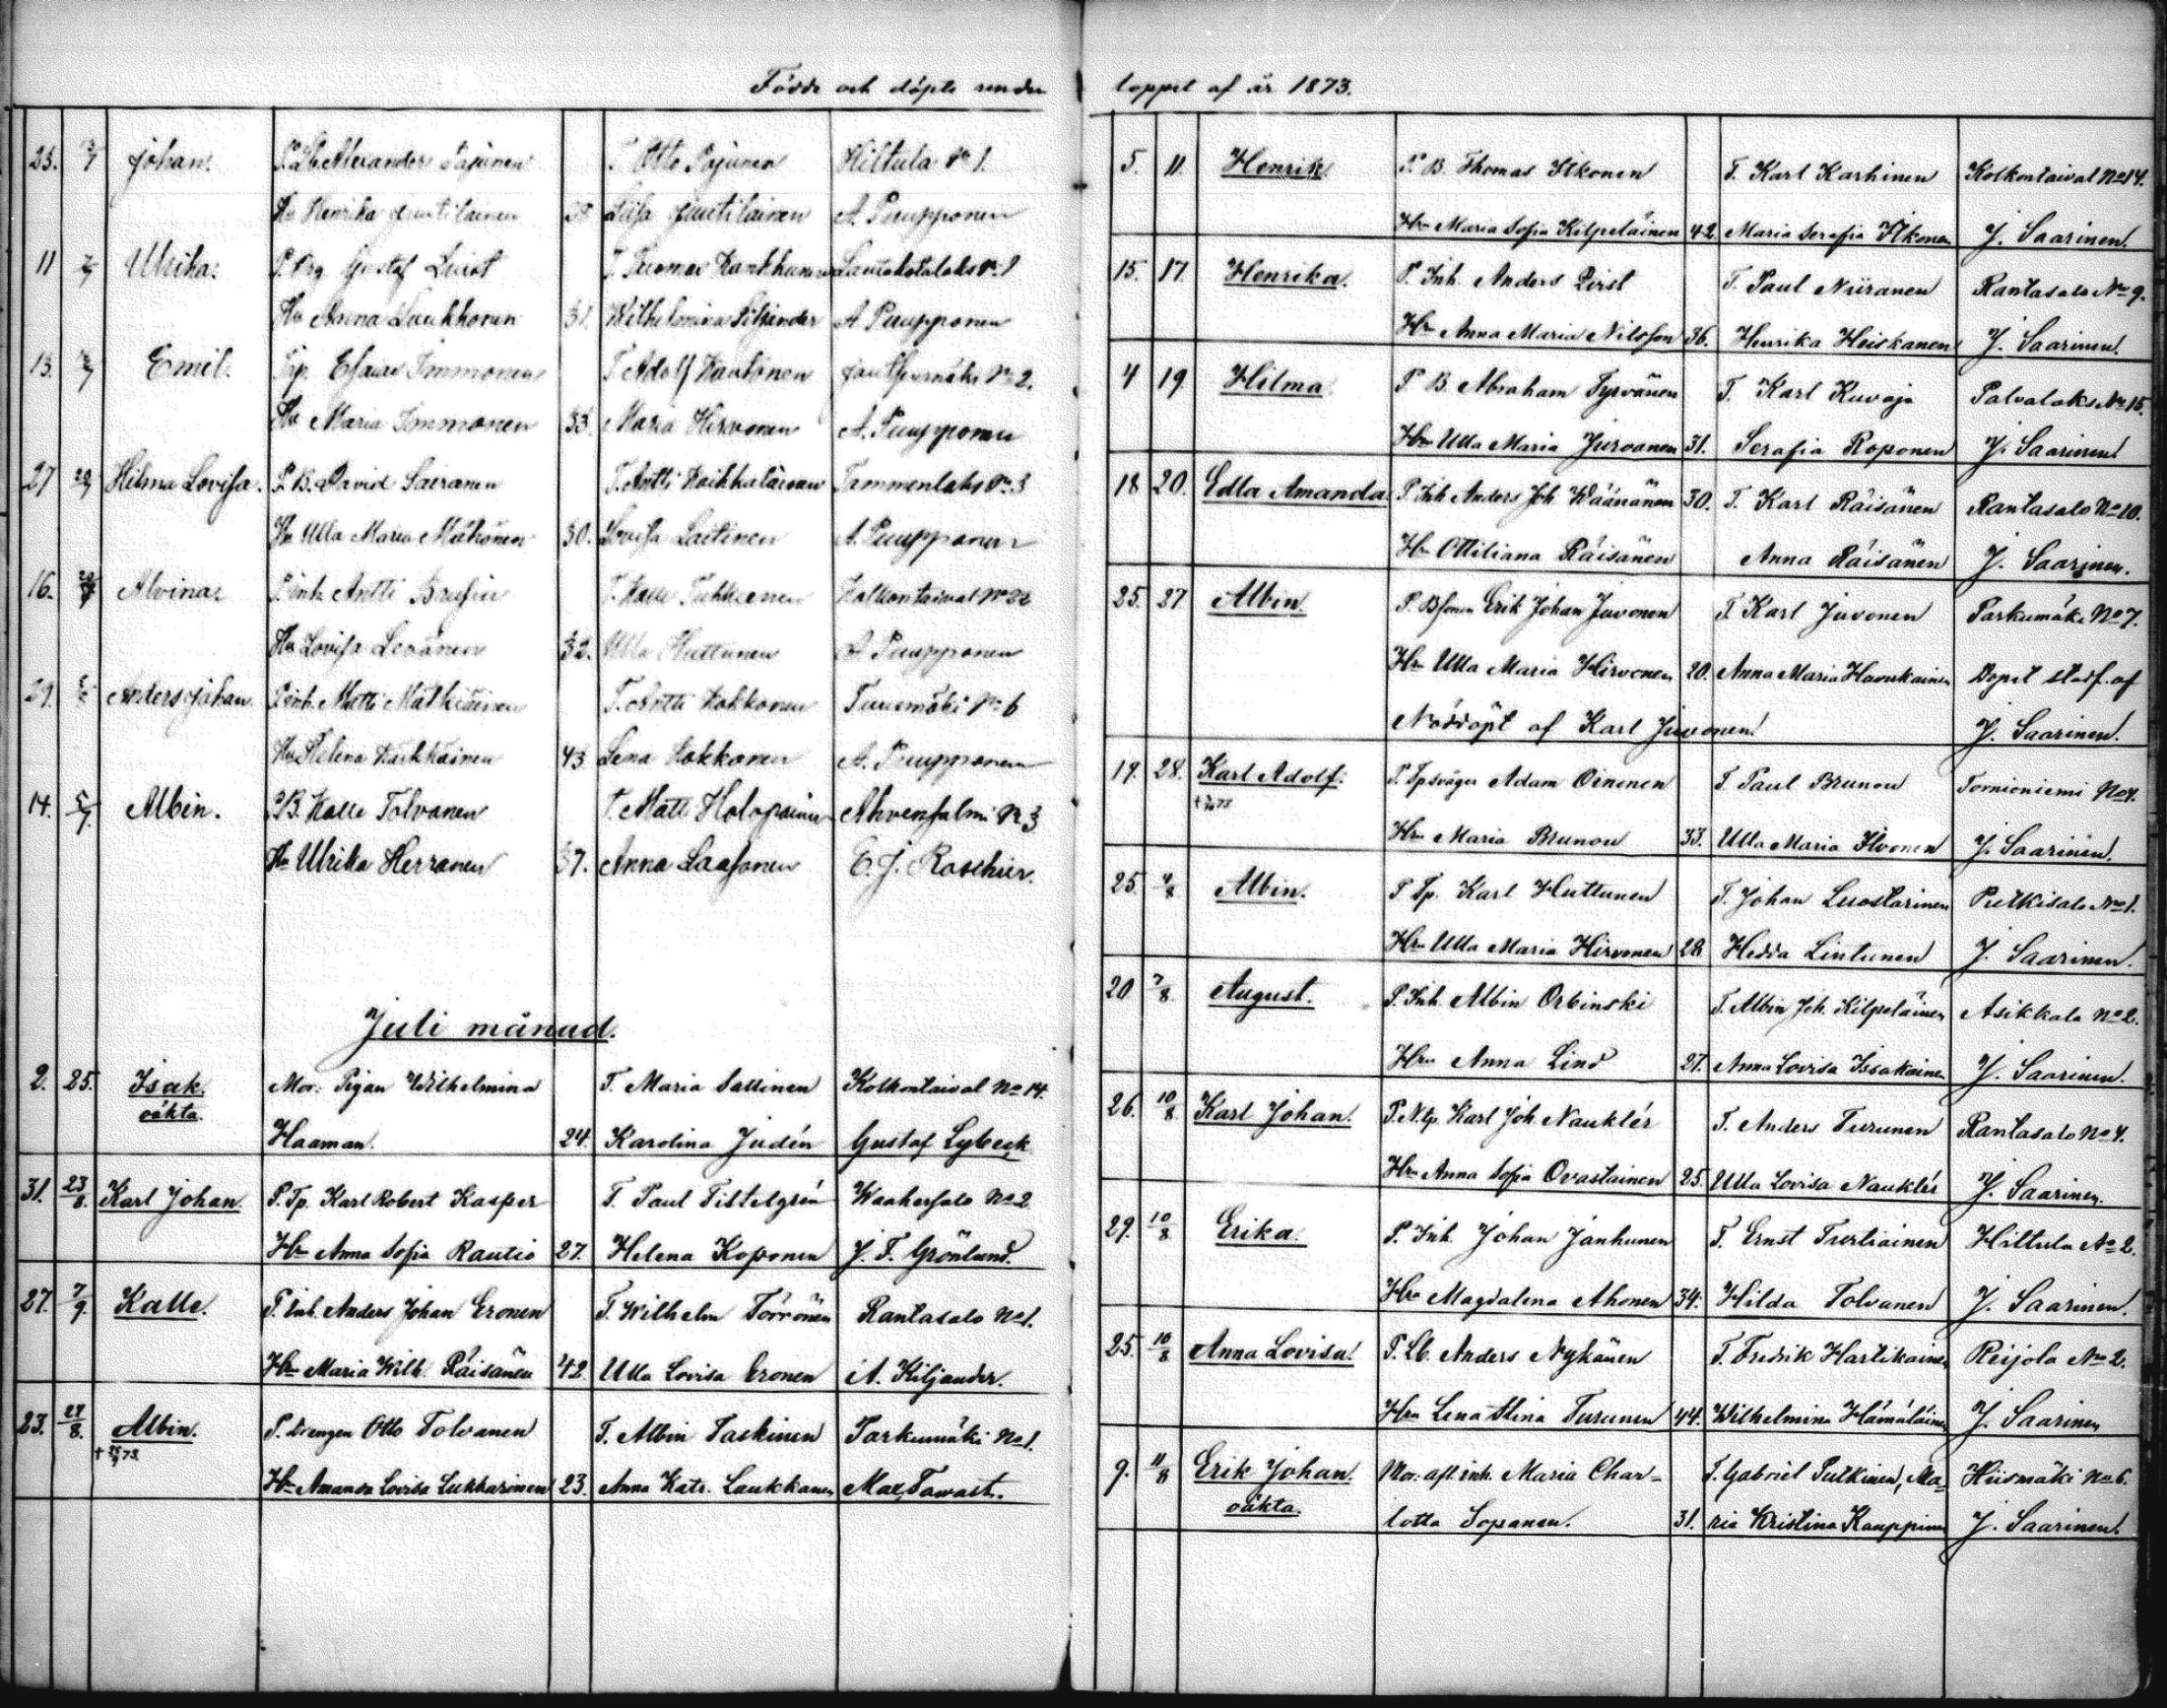 Födde och döpte under
25. 3/7 Johan. P. Lb. Alexander Pajunen T. Otto Pajunen Hiltula No 1.
Hu Henrika Juutilainen 38 Liisa Juutilainen A. Puupponen
11 Ulrika. P. Gustaf T. Tuomas No 1
Hu Anna Laukkonen 31. Wilhelmina A. Puupponen
13. Emil. Esaias Immonen T. Adolf Kautonen No 2.
Hu Maria Immonen 33. Maria Hirvonen A. Puupponen
27 20/7 Hilma Lovisa. P. B. David Sairanen T. Antti Tammenlaks No 3
Hu Ulla Maria Mähönen 30. Lovisa Laitinen A. Puupponen
16. 20/7 Alvina. P. inh. Antti Brusin T. Kalle Tukkianen Kolkontaival No 22
Hu Lovisa Levänen 32. Ulla Huttunen A. Puupponen
29. Anders Johan P. inh. Matti Matikainen T. Antti Kokkonen Tuusmäki No 6
Hu Helena Karkkainen 43 Lena Kokkonen A. Puupponen
14. 5/7. Albin. P/B. Kalle Tolvanen T. Matti Holopainen Ahvensalmi No 3
Hu Ulrika Herranen 37. Anna Laasonen E. J. Roschier.
Juli månad.
2. 25. Isak. Mor: Pigan Wilhelmina T. Maria Sallinen Kolkontaival No 14.
oäkta. Haaman. 24. Karolina Judén Gustaf Lybeck
31. 23/8. Karl Johan. P. Tp. Karl Robert Kasper T. Paul Tistelgrén Waahersalo No 2
Hu Anna Sofia Rautio 27. Helena Koponen J. F. Grönlund.
27. 7/9. Kalle. P. inh. Anders Johan Eronen T. Wilhelm Törrönen Rantasalo No 1.
Hu Maria Wilh. Räisänen 42. Ulla Lovisa Eronen A. Kiljander.
23. 24/8. Albin. P. drengen Otto Tolvanen T. Albin Taskinen Parkumäki No 1.
Hu Amanda Lovisa Lukkarinen 23. Anna Katr. Laukkanen Max. Tawast.
loppet af år 1873.
5. 11. Henrik P. B. Thomas Ikonen T. Karl Karhinen Kolkontaival No 14.
Hru Maria Sofia Kilpeläinen 42 Maria Serafia Ikonen J. Saarinen.
15. 17. Henrika. P. Inh. Anders Qvist T. Paul Niiranen Rantasalo No 9.
Hru Anna Maria Nilsson 36. Henrika Heiskanen J. Saarinen.
4 19 Hilma P. B. Abraham Tyrvänen T. Karl Kuvaja Palvalaks No 15.
Hru Ulla Maria Jurvanen 31. Serafia Roponen J. Saarinen
18 20. Edla Amanda. P. Inh. Anders Joh Wäänänen 30. T. Karl Räisänen Rantasalo No 10.
Hru Ottiliana Räisänen Anna Räisänen J. Saarinen.
25. 27 Albin. P. Bsonen Erik Johan Juvonen T. Karl Juvonen Parkumäki No 7.
Hru Ulla Maria Hirvonen 20. Anna Maria Havukainen Dopet stadf. af
Nöddöpt af Karl Juvonen. J. Saarinen.
19. 28. Karl Adolf. P. Tpsvåger Adam Oinonen T. Paul Brunou Tornioniemi No 4.
Hru Maria Brunou 33. Ulla Maria Ilvonen J. Saarinen.
25 4/8 Albin. P. Tp. Karl Huttunen T. Johan Luostarinen Putkisalo No 1.
Hru Ulla Maria Hirvonen 28 Hedda Lintunen J. Saarinen.
20 7/8. August. P. Inh. Albin Orbinski T. Albin Joh. Kilpeläinen Asikkala No 2.
Hru Anna Lind 27. Anna Lovisa Issakainen J. Saarinen.
26. 10/8. Karl Johan. P. N.tp. Karl Joh Nauklér T. Anders Turunen Rantasalo No 4.
Hru Anna Sofia Ovaskainen 25. Ulla Lovisa Nauklér J. Saarinen.
29. 10/8 Erika. P. Inh. Johan Janhunen T. Ernst Turtiainen Hiltula No 2.
Hru Magdalena Ahonen 34. Hilda Tolvanen J. Saarinen.
25. 10/8 Anna Lovisa. P. Lb. Anders Nykänen T. Fredrik Hartikainen Reijola No 2.
Hru Lena Stina Turunen 44. Wilhelmina Hämäläinen J. Saarinen
9. 11/8 Erik Johan. Mor: aft. inh. Maria Char- T. Gabriel Pulkinen, Ma- Hiismäki No 6.
oäkta. lotta Sopanen. 31. ria Kristina Kauppinen J. Saarinen.